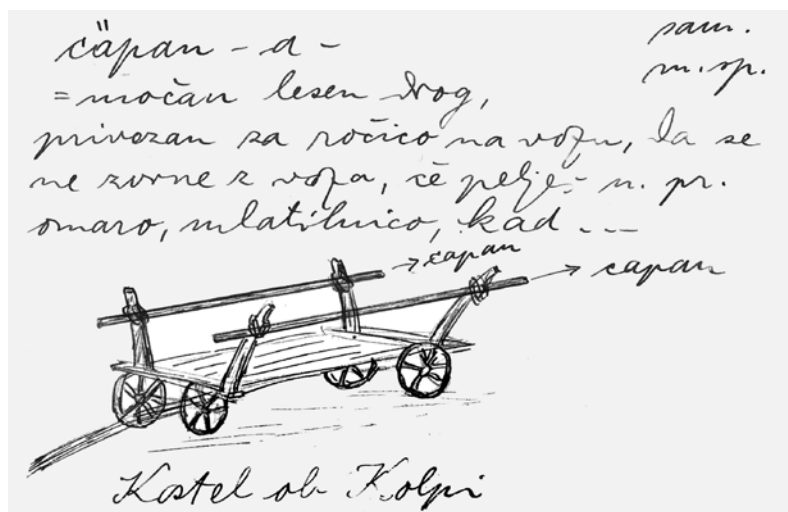 cäpan - a -
sam.
m. sp.
= močan lesen drog,
privezan za ročico na vozu, da se
ne zvrne z voza, če pelješ n. pr.
omaro, mlatilnico, kad ---
→ capan
→ capan
Kostel ob Kolpi